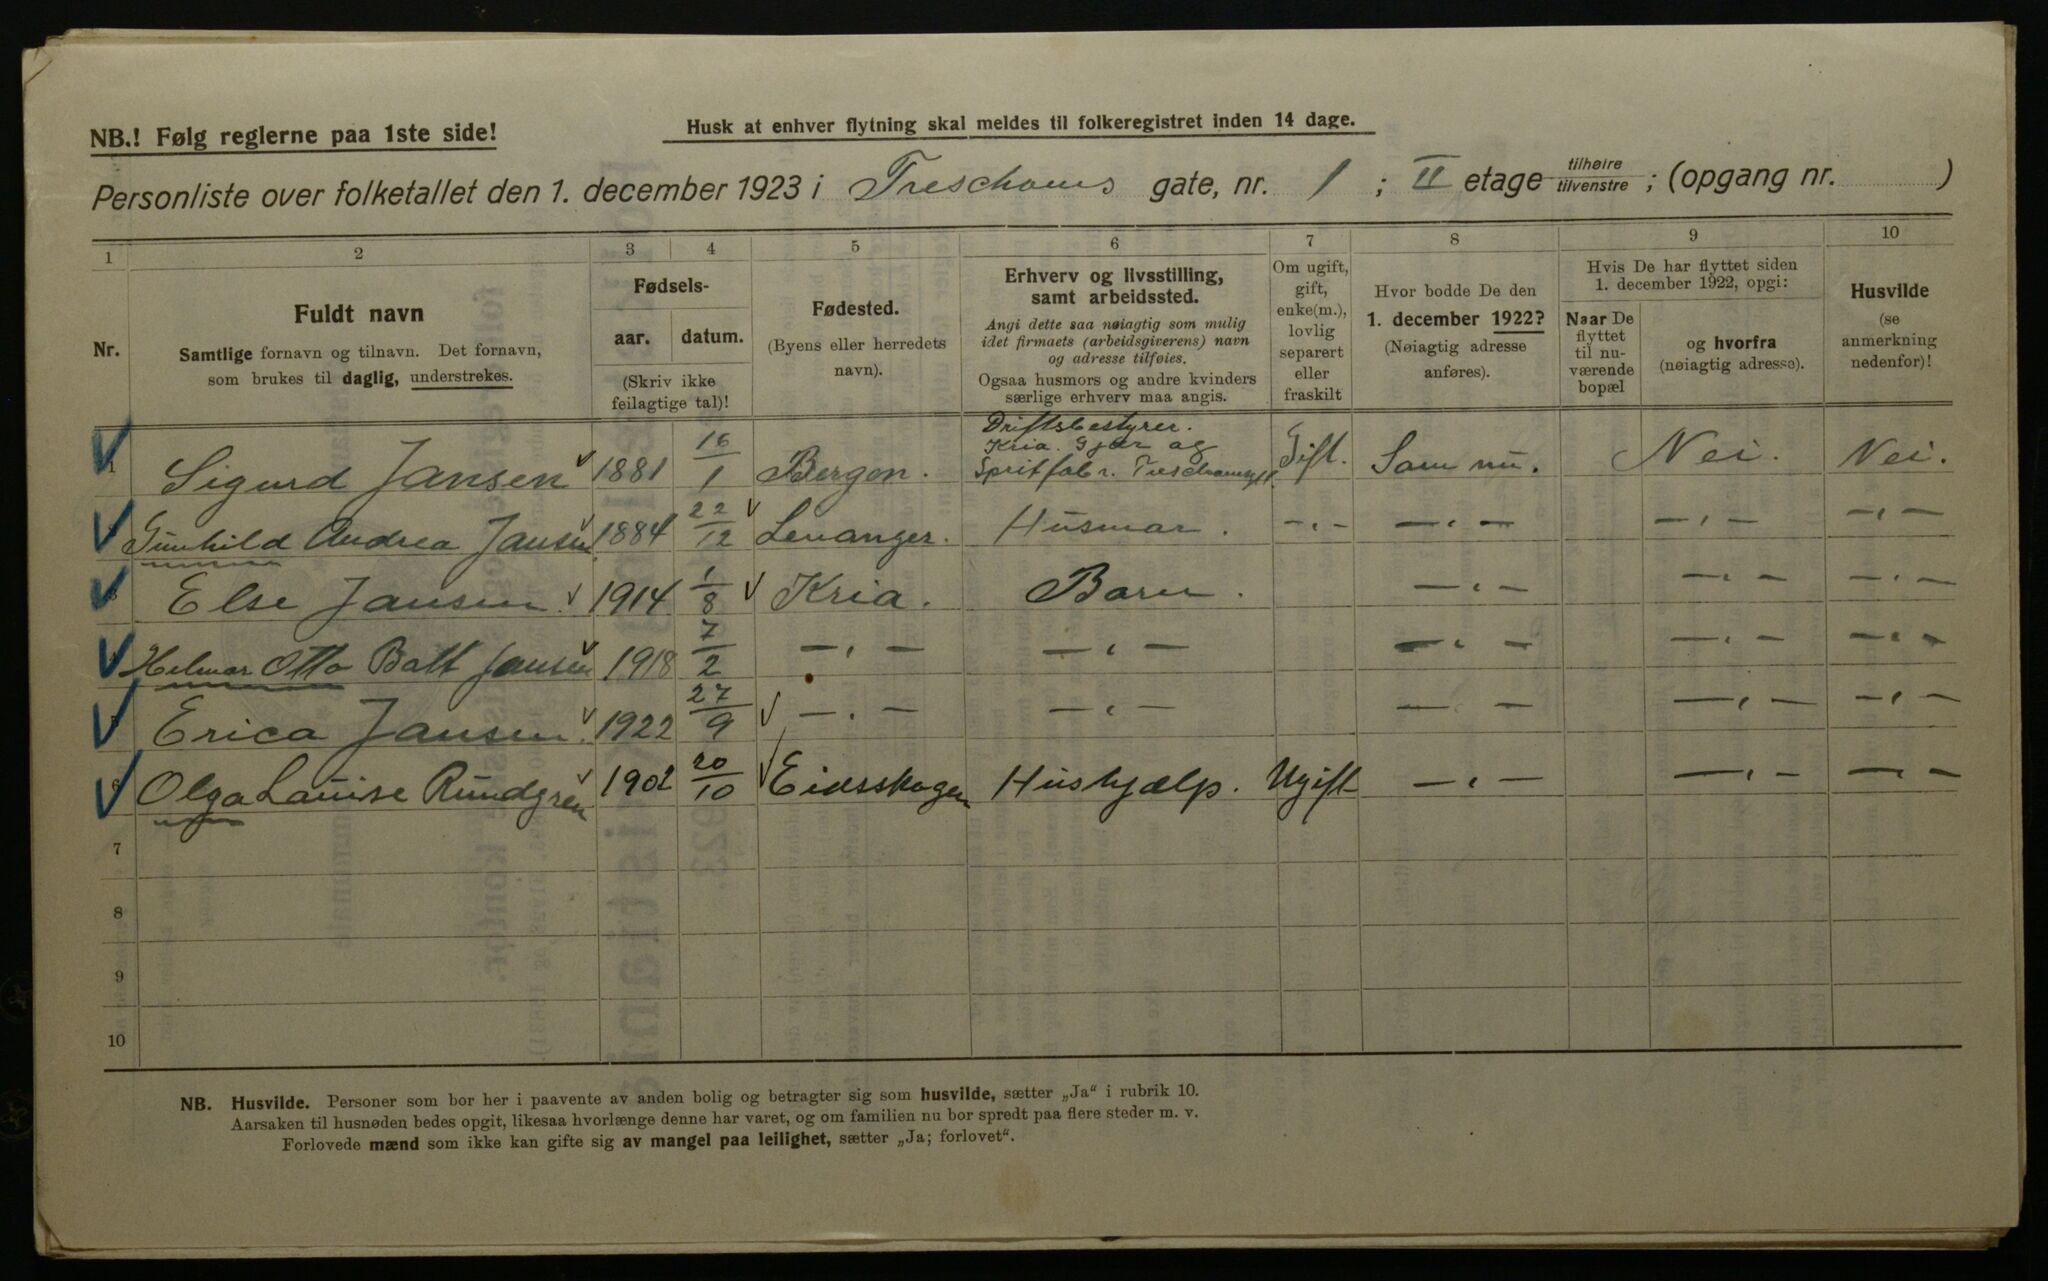 NB.! Følg reglerne paa 1ste side!
Husk at enhver flytning skal meldes til folkeregistret inden 14 dage.
Personliste over folketallet den 1. december 1923 i Treschows gate, nr. 1 ; II etage tilhøire tilvenstre ; (opgang nr. )
1 2 3 4 5 6 7 8 9 10
Nr.
Fuldt navn
Samtlige fornavn og tilnavn. Det fornavn,
som brukes til daglig, understrekes.
Fødsels-
aar. datum.
(Skriv ikke
feilagtige tal)!
Fødested.
(Byens eller herredets
navn).
Erhverv og livsstilling,
samt arbeidssted.
Angi dette saa nøiagtig som mulig
idet firmaets (arbeidsgiverens) navn
og adresse tilføies.
Ogsaa husmors og andre kvinders
særlige erhverv maa angis.
Om ugift,
gift,
enke(m.),
lovlig
separert
eller
fraskilt
Hvor bodde De den
1. december 1922?
(Nøiagtig adresse
anføres).
Hvis De har flyttet siden
1. december 1922, opgi:
Naar De
flyttet
til nu-
værende
bopæl
og hvorfra
(nøiagtig adresse).
Husvilde
(se
anmerkning
nedenfor)!
Driftsbestyrer.
Kria. Gjær og
1 Sigurd Jansen 1881 16/1 Bergen. Spritfabr. Treschowsgt. Gift. Som nu. Nei. Nei.
Gunhild Andrea Jansen 1884 22/12 Levanger. Husmor. -"- -"- -"- -"-
Else Jansen. 1914 1/8 Kria. Barn. -"- -"- -"-
Helmar Otto Batt Jansen 1918 7/2 -"- -"- -"- -"- -"-
5 Erica Jansen. 1922 27/9 -"- -"- -"- -"- -"-
6 Olga Louise Rundgren 1902 20/10 Eidsskogen Hushjælp. Ugift -"- -"- -"-
7
8
9
10
NB. Husvilde. Personer som bor her i paavente av anden bolig og betragter sig som husvilde, sætter „Ja“ i rubrik 10.
Aarsaken til husnøden bedes opgit, likesaa hvorlænge denne har varet, og om familien nu bor spredt paa flere steder m. v.
Forlovede mænd som ikke kan gifte sig av mangel paa leilighet, sætter „Ja; forlovet“.